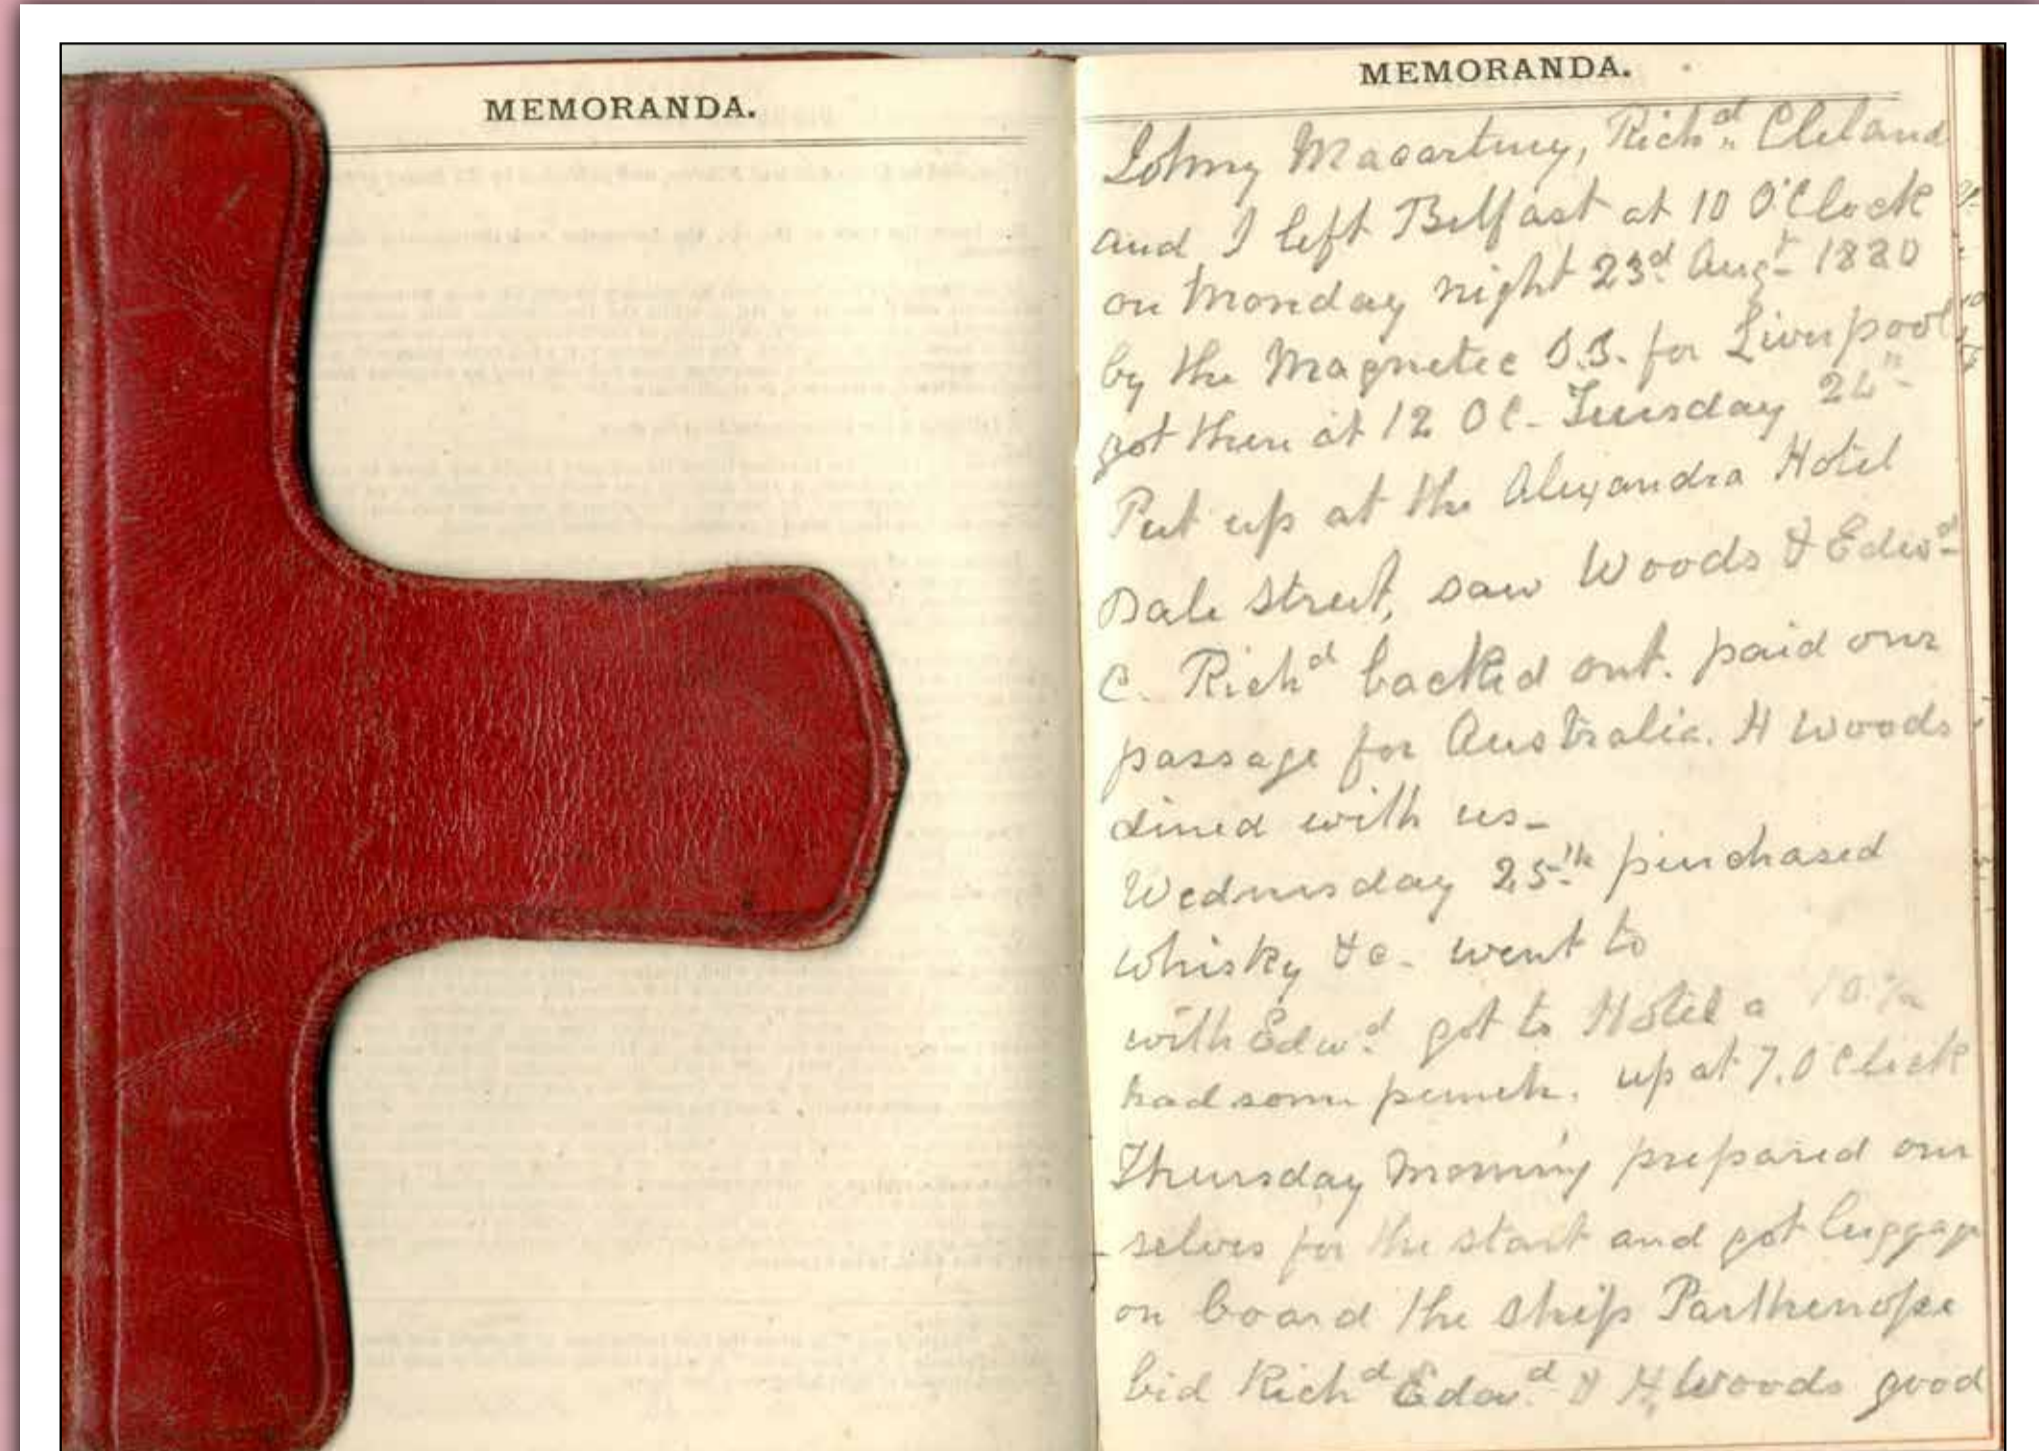 MEMORANDA.
MEMORANDA.
Johny Macartney, Richd. Cleland
and I left Belfast at 10 O'Clock
on Monday night 23d. Augt 1880
by the Magnetic S.S. for Liverpool
got there at 12 OC- Tuesday 24
Put up at the Alexandra Hotel
Dale Street, saw Woods & Edwd
C. Richd backed out. paid our
passage for Australia. H Woods
dined with us-
Wednesday 25th purchased
whisky &c- went to
with Edwd. got to Hotel a
had some punch. up at 7.0 Clock
Thursday morning prepared our
selves for the start and got luggage
on board the ship Parthenope
bid Richd Edwd. & H. Woods good